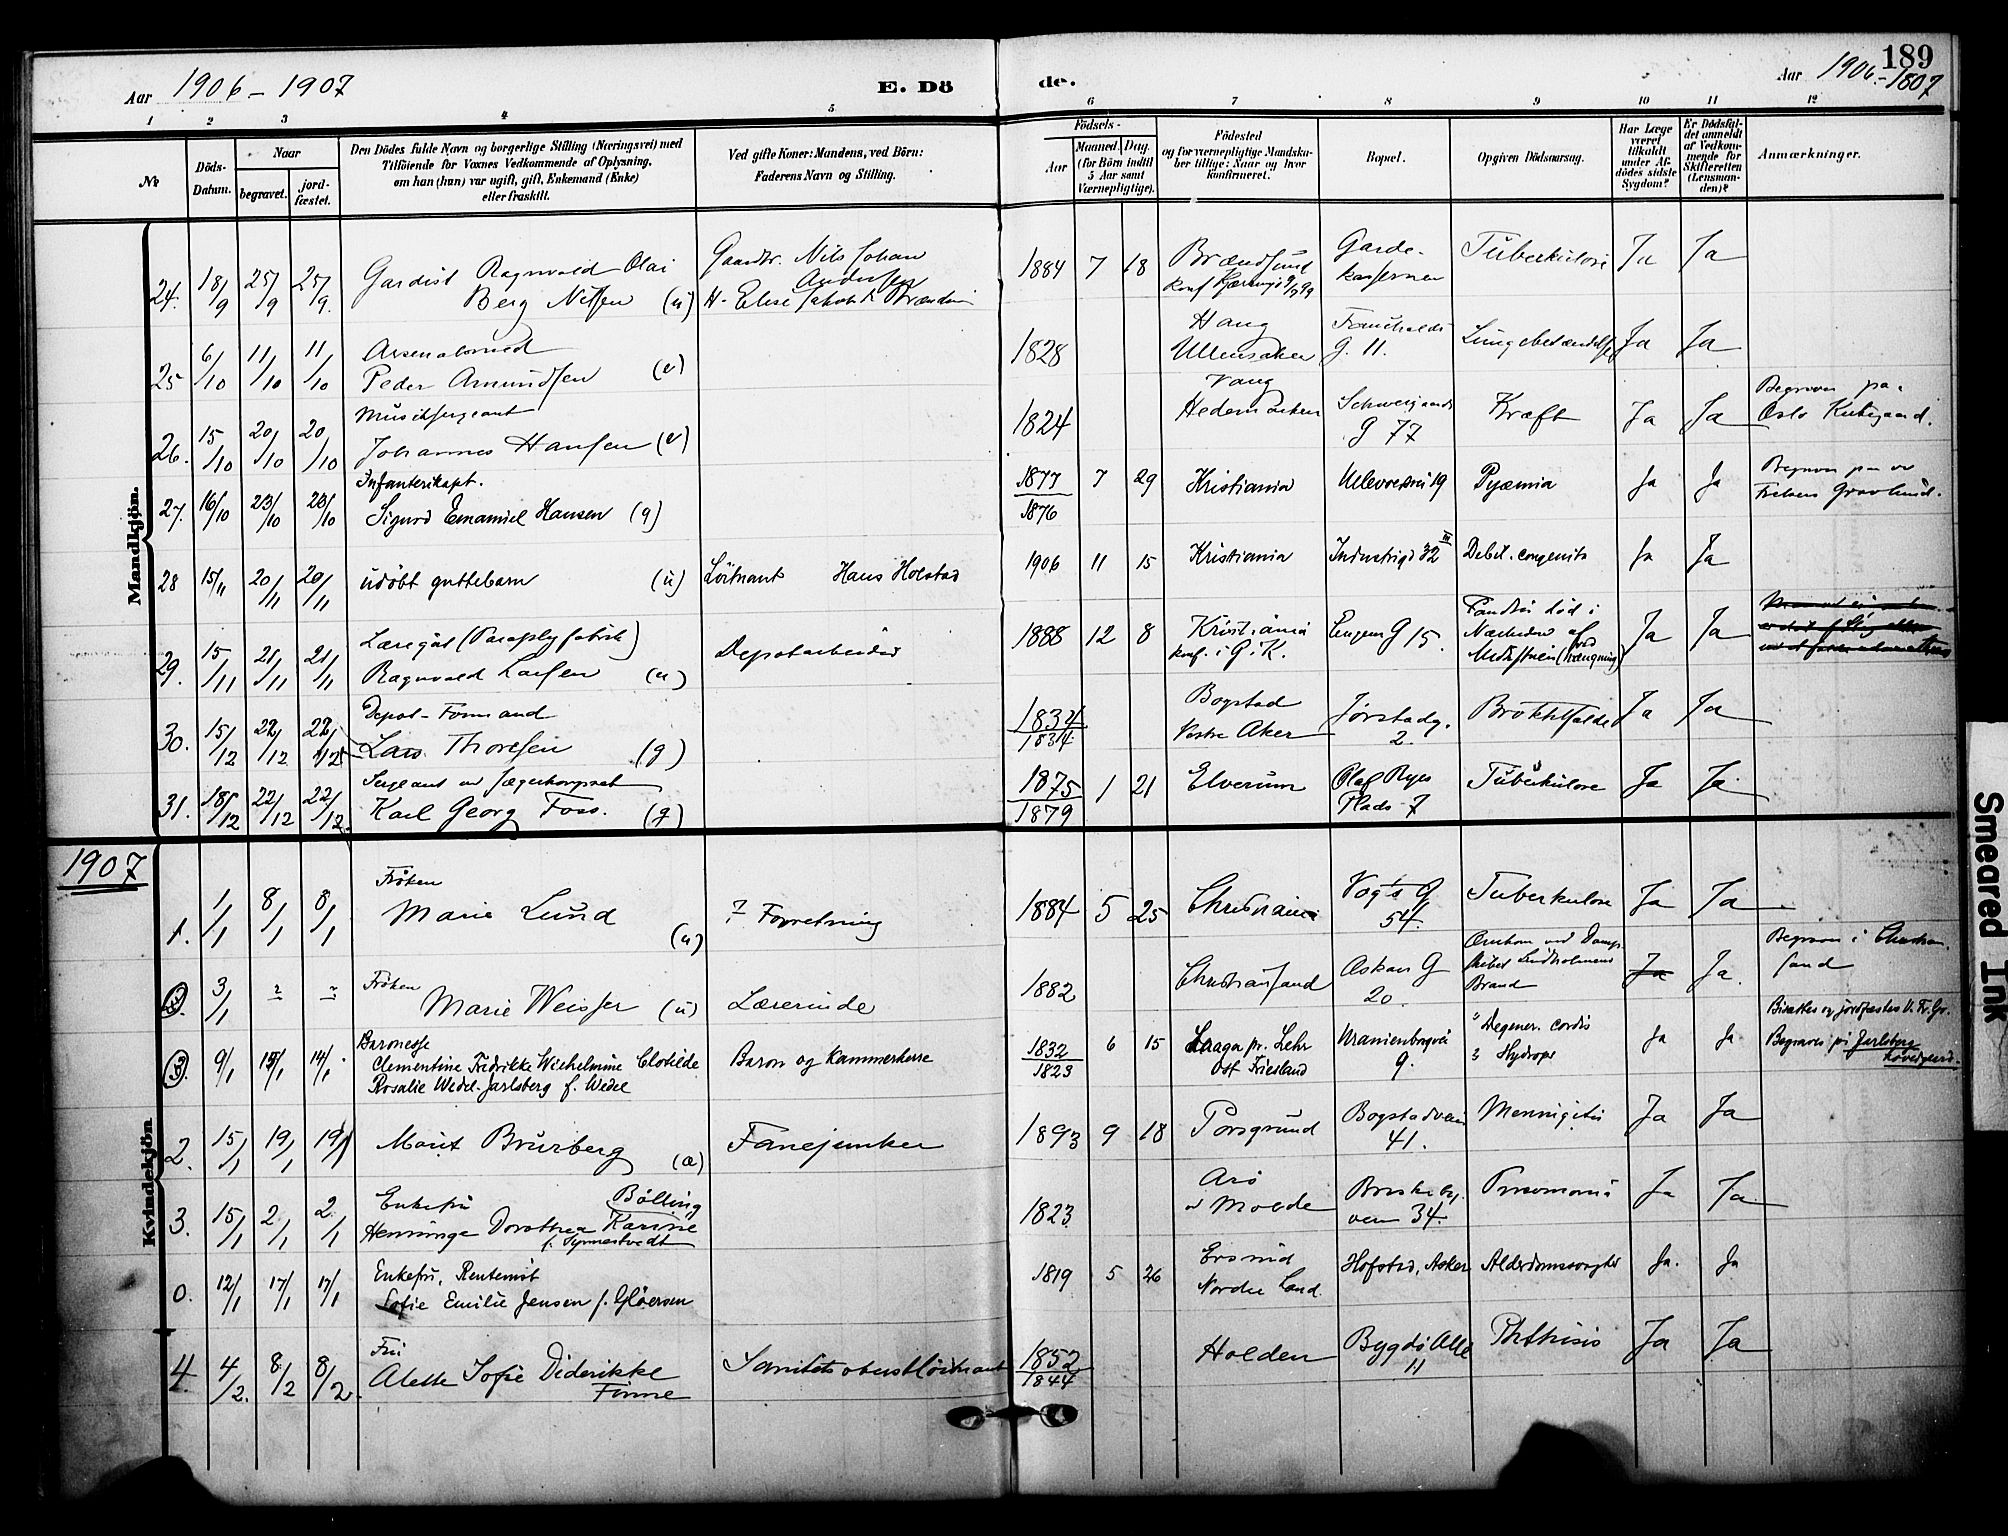 189
Aar 1906-1907
E. Dö
de.
Aar 1906-1807
1 2 3 4 5 6 7 8 9 10 11 12
№
Döds-Datum.
Naar
begravet.
jord-fæstet.
Den Dödes fulde Navn og borgerlige Stilling (Næringsvei) med
Tilföiende for Voxnes Vedkommende af Oplysning,
om han (hun) var ugift, gift, Enkemand (Enke)
eller fraskilt.
Ved gifte Koner: Mandens, ved Börn:
Faderens Navn og Stilling.
Födsels-
Aar
Maaned. Dag.
(for Börn indtil
5 Aar samt
Værnepligtige).
Födested
og for værnepligtige Mandska-
ber tillige: Naar og hvor
konfirmeret.
Bopæl.
Opgiven Dödsaarsag.
Har Læge
været
tilkaldt
under Af-
dödes sidste
Sygdom?
Er Dödsfal-
det anmeldt
af Vedkom-
mende for
Skifteretten
(Lensman-
den)?
Anmærkninger.
Mandkjön.
24. 18/9 25/9 25/9 Gardist Ragnvald Olai
Berg Nilsen (u)
Gaardbr. Nils Johan
Andersen
1884 7 18
Garde-
kasernen
Tuberkulose Ja Ja
25 6/10 11/10 11/10
Peder Amundsen (e)
1828
Haug
Ullensaker
G. 11.
Lungebetændelse Ja Ja
26. 15/10 20/10 20/10 Musiksergeant
Johannes Hansen (e)
1824
Vang
Hedemarken
Schweigaards
G 77
Kræft Ja Ja
Begraven paa
Oslo Kirkegaard.
27. 16/10 23/10 23/10 Infanterikapt.
Sigurd Emanuel Hansen (g)
1877
1876
7 29 Kristiania Ullevoldsvei 19 Pyæmia Ja Ja
Frelsers Gravlund.
28 15/11 20/11 20/11 udöbt guttebarn (u) Löitnant Hans Holstad
1906 11 15 Kristiania Industrigd 32 III Debil. congenita Ja Ja
29. 15/11 21/11 21/11 Læregut (Paraplyfabrik)
Ragnvald Larsen (u)
Depotarbeider
1888 12 8 Kristiania
konf. i G. K.
Engens G 15.
Fandtes död i
Nærheden af
Ja Ja
30. 15/12 22/12 22/12 Depot-Formand
Lars Thoresen (g)
1832
1834
Bogstad
Vestre Aker
Jørstadg.
2.
Ja Ja
31. 18/12 22/12 22/12 Sergeant ved Jægerkorpset
Karl Georg Foss. (g)
1875
1879
1 21 Elverum
Olaf Ryes
Plads 7
Tuberkulose Ja Ja
1907
Kvindekjön
1. 1/1 8/1 8/1 Fröken
Marie Lund (u)
? Forretning
1884 5 25 Christiania
Vogts G
54.
Tuberkulose Ja Ja
3/1 Fröken
Marie Weisser (u)
Lærerinde
1882 Christiansand
20.
Brand
Ja Ja.
Begraven i Christian-
sand
(3). 9/1 15/1 14/1 Baronesse
Clementine Fredrikke Wilhelmine Clotilde
Rosalie Wedel-Jarlsberg f. Wedel
Baron og Kammerherre
1832
1823
6 15 Laaga pr. Lehr
Ost Friesland
Uranienborgvei
9.
Degener. cordis
Hydrops
Ja Ja
Bisættes og jordfæstes V. Fr. Gr.
Begraves på Jarlsberg
hovedgaard.
2. 15/1 19/1 19/1 Marit Bruvberg (a) Fanejunker
1893 9 18 Porsgrund Bogstadveien
41.
Meningitis Ja Ja
3. 15/1 2/1 2/1 Enkefru Bölling
Henninge Dorothea Karine
f. Synnestvedt
1823
Arö
v Molde
Briskeby
veien 34.
Pneumonia Ja Ja
0. 12/1 17/1 17/1 Enkefru, Rentenist
Sofie Emilie Jensen f. Glöersen
1819 5 26
Nordre Land.
Hofstad, Asker Alderdomssvaghed Ja. Ja
4 4/2. 8/2 8/2. Fru
Alette Sofie Diderikke
Sanitetsoberstlöitnant
1852
1844
Holden
Bygdö Alle
11
Phthisis Ja Ja
Smeared Ink